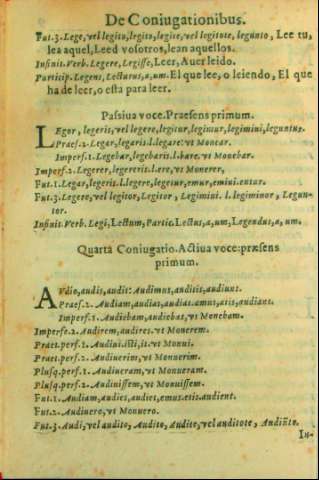 De Coniugationibus.
Fut.3. Lege, vel legito, legito, legite, vel legitote, legunto, Lee tu,
lea aquel, Leed vosotros, lean aquellos.
Infinit. Verb. Legere, Legisse, Leer, Auer leido.
Particip. Legens, Lecturus, a, um. El que lee, o leiendo, El que
ha de leer, o esta para leer.
Passiua voce. Præsens primum.
LEgor, legeris, vel legere, legitur, legimur, legimini, leguntur.
Præs.2. Legar, legaris. l. legare: vt Monear.
Imperf.1. Legebar, legebaris. l. bare. vt Monebar.
Imperf.2. Legerer, legereris. l. ere, vt Monerer,
Fut.1. Legar, legeris. l. legere, legetur, emur, emini. entur.
Fut.3. Legere, vel legitor, Legitor, Legimini. l. legiminor, Legun-
tor.
Infinit. Verb. Legi, Lectum, Partic. Lectus, a, um, Legendus, a, um.
Quarta Coniugatio. Actiua voce: præsens
primum.
AVdio, audis, audit: Audimus, auditis, audiunt.
Præs.2. Audiam, audias, audiat. amus, atis, audiant.
Imperf.1. Audiebam, audiebas, vt Monebam.
Imperfe.2. Audirem, audires. vt Monerem.
Præt. perf.1. Audiui. isti, it. vt Monui.
Præt. perf.2. Audiuerim, vt Monuerim.
Plusq. perf.1. Audiueram, vt Monueram.
Plusq. perf.2. Audiuissem, vt Monuissem.
Fut.1. Audiam, audies, audiet, emus. etis. audient.
Fut.2. Audiuero, vt Monuero.
Fut.3. Audi, vel audito, Audito, Audite, vel auditote, Audiũte.
In-